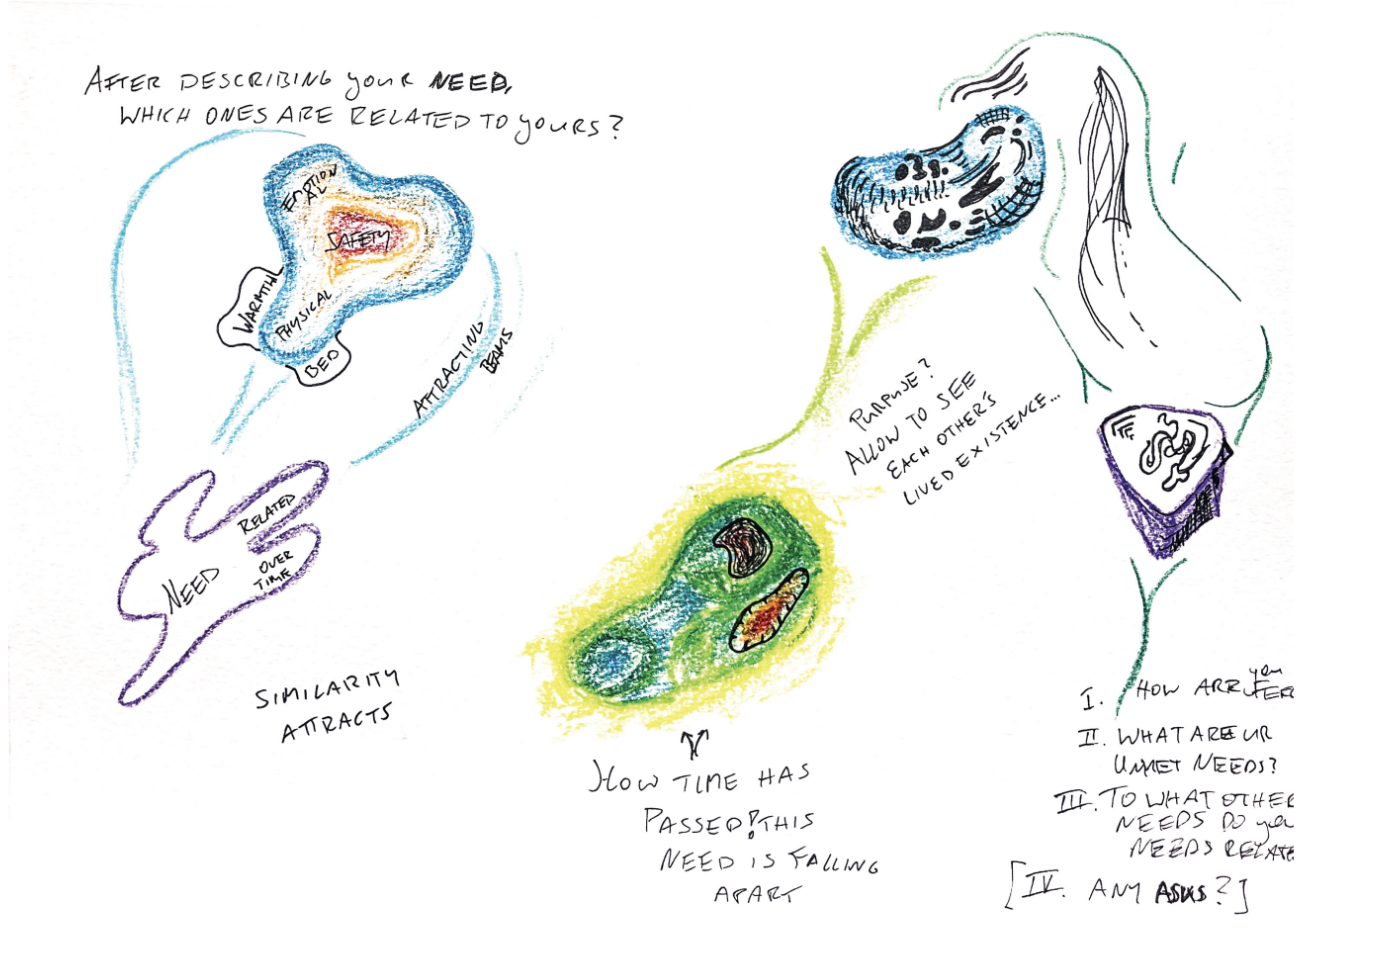 AFTER DESCRIBING your NEED,
WHICH ONES ARE RELATED TO yOURS?
EMOTION
AL
SAFETY
WARMTH
PHYSICAL
BED
ATTRACTING
BEAMS
RELATED
OVER
TIME
NEED
SIMILARITY
ATTRACTS
PURPOSE?
ALLOW TO SEE
EACH OTHER'S
LIVED EXISTENCE...
HOW TIME HAS
PASSED! THIS
NEED IS FALLING
APART
I. HOW ARE you
II. WHAT ARE UR
UNMET NEEDS?
III. TO WHAT OTHER
NEEDS DO you
NEEDS RELATE
[IV. ANY ASKS?]